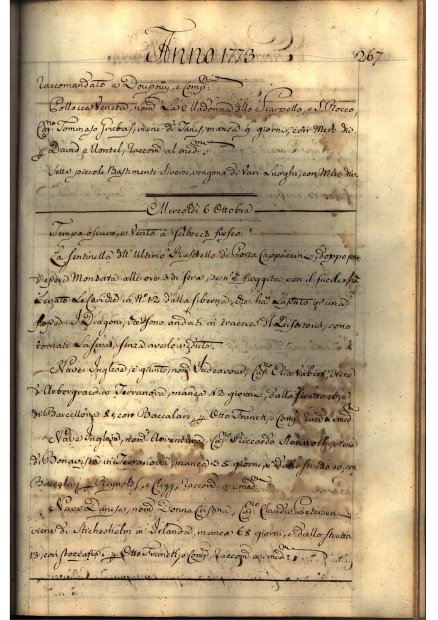 Anno 1773
267
Raccomandato a Doupouy, e Comp:
Pollacca Veneta, nom La Madonna dello Scarpello, e S. Rocco,
Cap.no Tommaso Grubas, viene di Tanes, manca 9 giorni, con Merc div
p David, e Montel, Raccom al med.me
Sette piccoli Bastimenti diversi, vengono di Vari Luoghi, con Merc div.
Mercoledì 6 Ottobre
Tempo oscuro, e Vento a Scilocco fresco.
La Sentinella dell' Ultimo Rastello di Porta Cappuccina, doppo
d'esser Montata alle ore 3 di sera, se n'è fuggita con il fucile
Legato in N.o 12 dalla giberna, che ha lasciato in una
I Dragoni, che sono andati in traccia del Disertore, sono
tornati la sera, senza averlo
Nave Inglese, è giunta, nom Indeavour, Cap. Elia Vabert, viene
d' in Terranova, manca giorni, dallo stretto 16, e
di Barcellona 8, con Baccalari, p Otto Franck, e Comp, Racc a med
Nave Inglese, nom Cap. Riccardo viene
di Bonavista in Terranova, manca 35 giorni, e dallo stretto 10, con
Baccalari, p Reynolds, e Clegg, Raccom a med
Nave Danese, nom Donna Cristina, Cap.no Claudio Petersen
viene di Stichesholm in Islanda, manca 68 giorni, e dallo stretto
13, con stoccafiss, p Otto Franck, e Comp, Raccom a med.mi